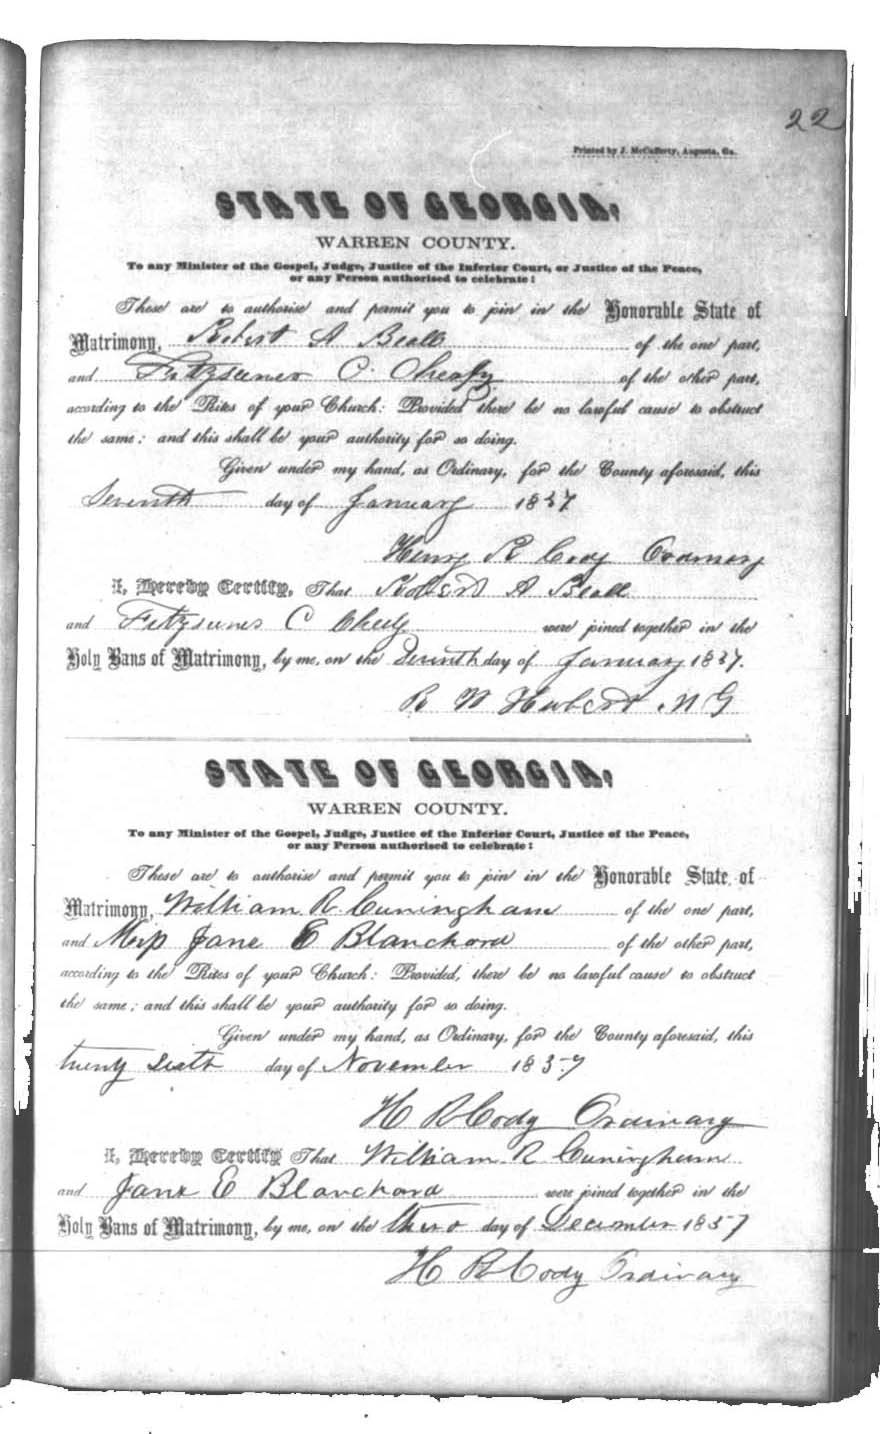 22
Printed by J. McCafferty, Augusta, Ga.
STATE OF GEORGIA,
WARREN COUNTY.
To any Minister of the Gospel, Judge, Justice of the Inferior Court, or Justice of the Peace,
or any Person authorised to celebrate:
These are to authorise and permit you to join in the Honorable State of
Matrimony, Robert A Beall of the one part,
and C. of the other part,
according to the Rites of your Church: Provided there be no lawful cause to obstruct
the same; and this shall be your authority for so doing.
Given under my hand, as Ordinary, for the County aforesaid, this
Seventh day of January 1857
Henry R Cody Ordinary
I, Hereby Certify, That Robert A Beall
and C were joined together in the
Holy Bans of Matrimony, by me, on the Seventh day of January 1857.
R W Hubert M G
STATE OF GEORGIA,
WARREN COUNTY.
To any Minister of the Gospel, Judge, Justice of the Inferior Court, Justice of the Peace,
or any Person authorised to celebrate:
These are to authorise and permit you to join in the Honorable State of
Matrimony, William R Cuningham of the one part,
and Miss Jane E Blanchard of the other part,
according to the Rites of your Church: Provided, there be no lawful cause to obstruct
the same; and this shall be your authority for so doing.
Given under my hand, as Ordinary, for the County aforesaid, this
twenty Sixth day of November 1857
H R Cody Ordinary
I, Hereby Certify That William R Cuningham
and Jane E Blanchard were joined together in the
Holy Bans of Matrimony, by me, on the third day of December 1857
H R Cody Ordinary